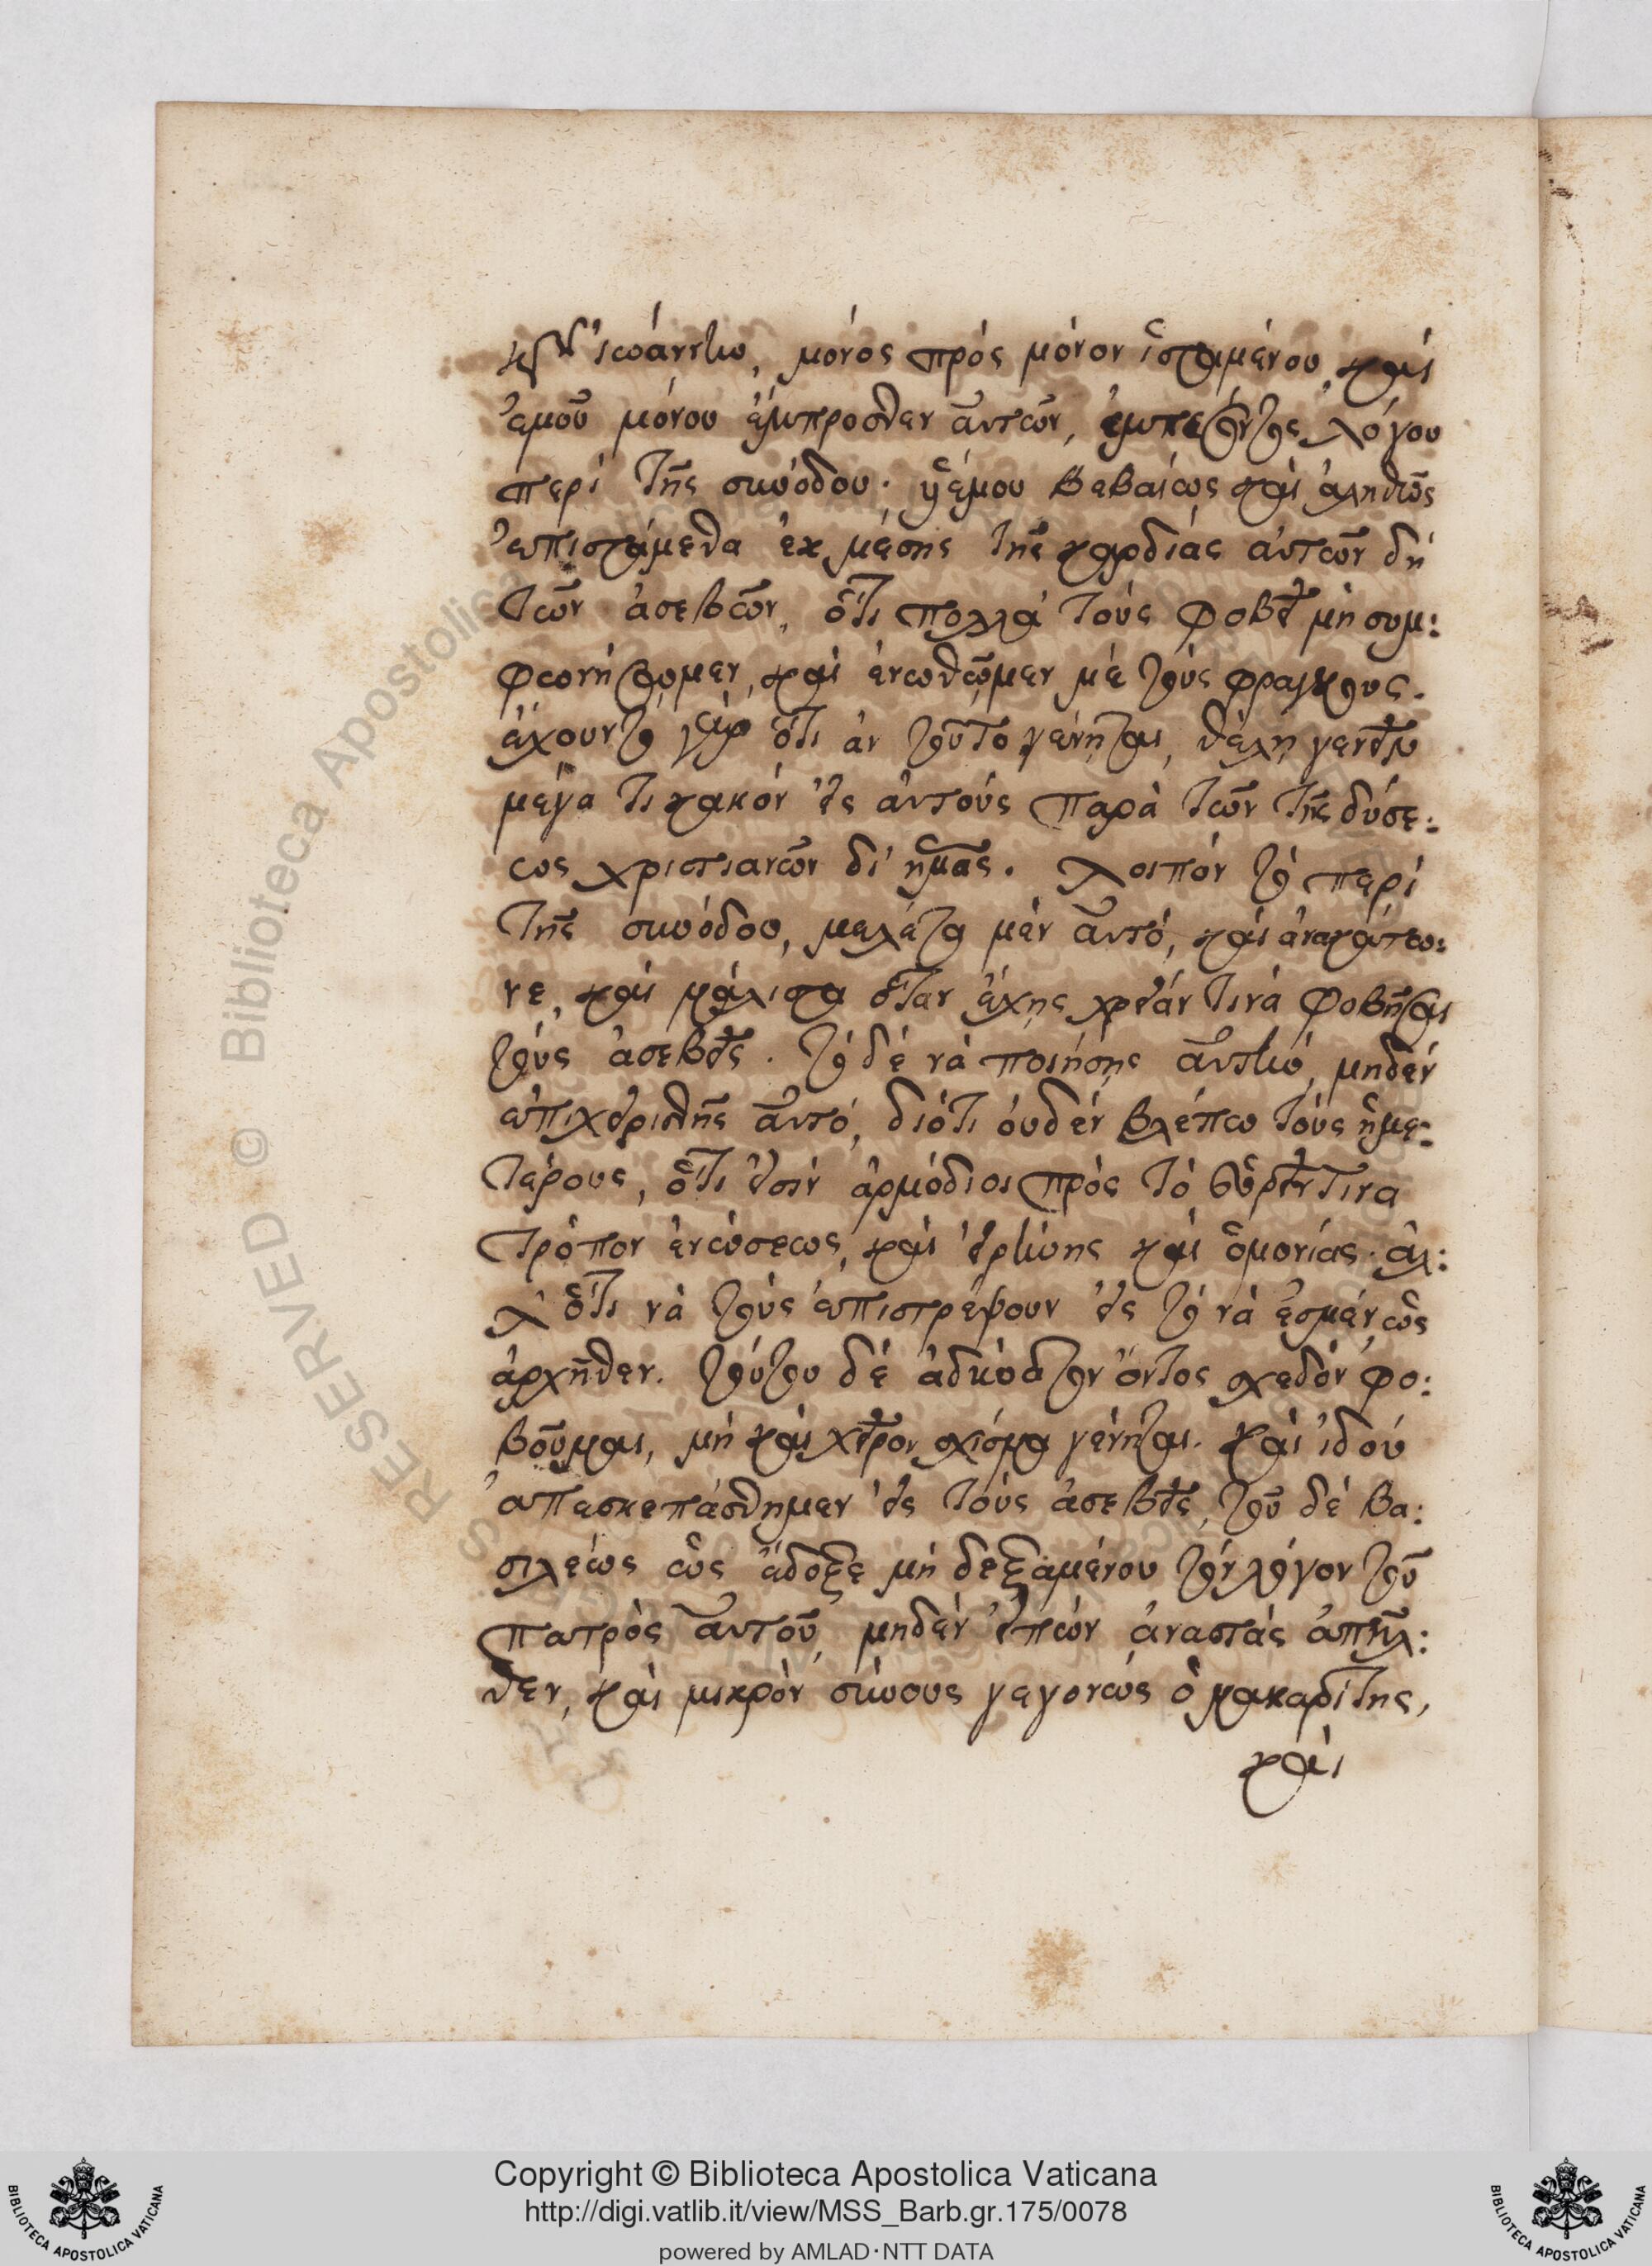 κῦν ἰωάννην, μόνος πρός μόνον ἱσταμένου, καί
ἐμοῦ μόνου ἔμπροσθεν αὐτῶν, ἐμπεσόντος λόγου
περί τῆς συνόδου. υἱέ μου βεβαίως καί ἀληθῶς
ἐπιστάμεθα ἐκ μέσης τῆς καρδίας αὐτῶν δή
τῶν ἀσεβῶν, ὅτι πολλά τούς φοβεῖ μή συμ:
φωνήσωμεν, καί ἑνωθῶμεν μέ τούς φράγκους.
ἔχουν τό γάρ ὅτι ἄν τοῦτο γένηται, θέλη γενεῖν
μέγα τι κακόν εἰς αὐτούς παρά τῶν τῆς δύσε:
ως χριστιανῶν δι' ἡμᾶς. λοιπόν τό περί
τῆς συνόδου, μελέτα μέν αὐτό, καί ἀνακάτω:
νε, καί μάλιστα ὅταν ἔχης χρείαν τινά φοβῆσαι
τούς ἀσεβεῖς. τό δέ νά ποιήσης αὐτήν, μηδέν
ἐπιχειρισθῆς αὐτό, διότι οὐδέν βλέπω τούς ἡμε:
τέρους, ὅτι εἰσίν ἁρμόδιοι πρός τό εὑρεῖν τινα
τρόπον ἑνώσεως, καί εἰρήνης καί ὁμονίας. ἀλ:
λ' ὅτι νά τούς ἐπιστρέψουν εἰς τό νά ἐσμέν ὡς
ἀρχῆθεν. τούτου δέ ἀδυνάτου ὄντος σχεδόν φο:
βοῦμαι, μή καί χεῖρον σχίσμα γένηται. καί ἰδού
ἀπεσκεπάσθημεν εἰς τούς ἀσεβεῖς, τοῦ δέ βα:
σιλέως ὡς ἔδοξε μή δεξαμένου τόν λόγον τοῦ
πατρός αὐτοῦ, μηδέν εἰπών ἀναστάς ἀπῆλ:
θεν, καί μικρόν σύνους γεγονώς ὁ μακαρίτης,
καί
Copyright © Biblioteca Apostolica Vaticana
http://digi.vatlib.it/view/MSS_Barb.gr.175/0078
powered by AMLAD·NTT DATA